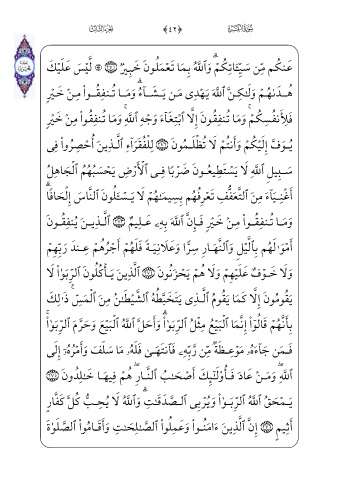 سُورَةُ البَقَرَةِ ﴿٤٦﴾ الجُزءُ الثَّالِثُ
عَنكُم مِّن سَيِّـَٔاتِكُمْ ۗ وَٱللَّهُ بِمَا تَعْمَلُونَ خَبِيرٌ ۝ ۞ لَّيْسَ عَلَيْكَ
هُدَىٰهُمْ وَلَـٰكِنَّ ٱللَّهَ يَهْدِى مَن يَشَآءُ ۗ وَمَا تُنفِقُوا۟ مِنْ خَيْرٍ
فَلِأَنفُسِكُمْ ۚ وَمَا تُنفِقُونَ إِلَّا ٱبْتِغَآءَ وَجْهِ ٱللَّهِ ۚ وَمَا تُنفِقُوا۟ مِنْ خَيْرٍ
يُوَفَّ إِلَيْكُمْ وَأَنتُمْ لَا تُظْلَمُونَ ۝ لِلْفُقَرَآءِ ٱلَّذِينَ أُحْصِرُوا۟ فِى
سَبِيلِ ٱللَّهِ لَا يَسْتَطِيعُونَ ضَرْبًا فِى ٱلْأَرْضِ يَحْسَبُهُمُ ٱلْجَاهِلُ
أَغْنِيَآءَ مِنَ ٱلتَّعَفُّفِ تَعْرِفُهُم بِسِيمَـٰهُمْ لَا يَسْـَٔلُونَ ٱلنَّاسَ إِلْحَافًا ۗ
وَمَا تُنفِقُوا۟ مِنْ خَيْرٍ فَإِنَّ ٱللَّهَ بِهِۦ عَلِيمٌ ۝ ٱلَّذِينَ يُنفِقُونَ
أَمْوَٰلَهُم بِٱلَّيْلِ وَٱلنَّهَارِ سِرًّا وَعَلَانِيَةً فَلَهُمْ أَجْرُهُمْ عِندَ رَبِّهِمْ
وَلَا خَوْفٌ عَلَيْهِمْ وَلَا هُمْ يَحْزَنُونَ ۝ ٱلَّذِينَ يَأْكُلُونَ ٱلرِّبَوٰا۟ لَا
يَقُومُونَ إِلَّا كَمَا يَقُومُ ٱلَّذِى يَتَخَبَّطُهُ ٱلشَّيْطَـٰنُ مِنَ ٱلْمَسِّ ۚ ذَٰلِكَ
بِأَنَّهُمْ قَالُوٓا۟ إِنَّمَا ٱلْبَيْعُ مِثْلُ ٱلرِّبَوٰا۟ ۗ وَأَحَلَّ ٱللَّهُ ٱلْبَيْعَ وَحَرَّمَ ٱلرِّبَوٰا۟ ۚ
فَمَن جَآءَهُۥ مَوْعِظَةٌ مِّن رَّبِّهِۦ فَٱنتَهَىٰ فَلَهُۥ مَا سَلَفَ وَأَمْرُهُۥٓ إِلَى
ٱللَّهِ ۖ وَمَنْ عَادَ فَأُو۟لَـٰٓئِكَ أَصْحَـٰبُ ٱلنَّارِ ۖ هُمْ فِيهَا خَـٰلِدُونَ ۝
يَمْحَقُ ٱللَّهُ ٱلرِّبَوٰا۟ وَيُرْبِى ٱلصَّدَقَـٰتِ ۗ وَٱللَّهُ لَا يُحِبُّ كُلَّ كَفَّارٍ
أَثِيمٍ ۝ إِنَّ ٱلَّذِينَ ءَامَنُوا۟ وَعَمِلُوا۟ ٱلصَّـٰلِحَـٰتِ وَأَقَامُوا۟ ٱلصَّلَوٰةَ